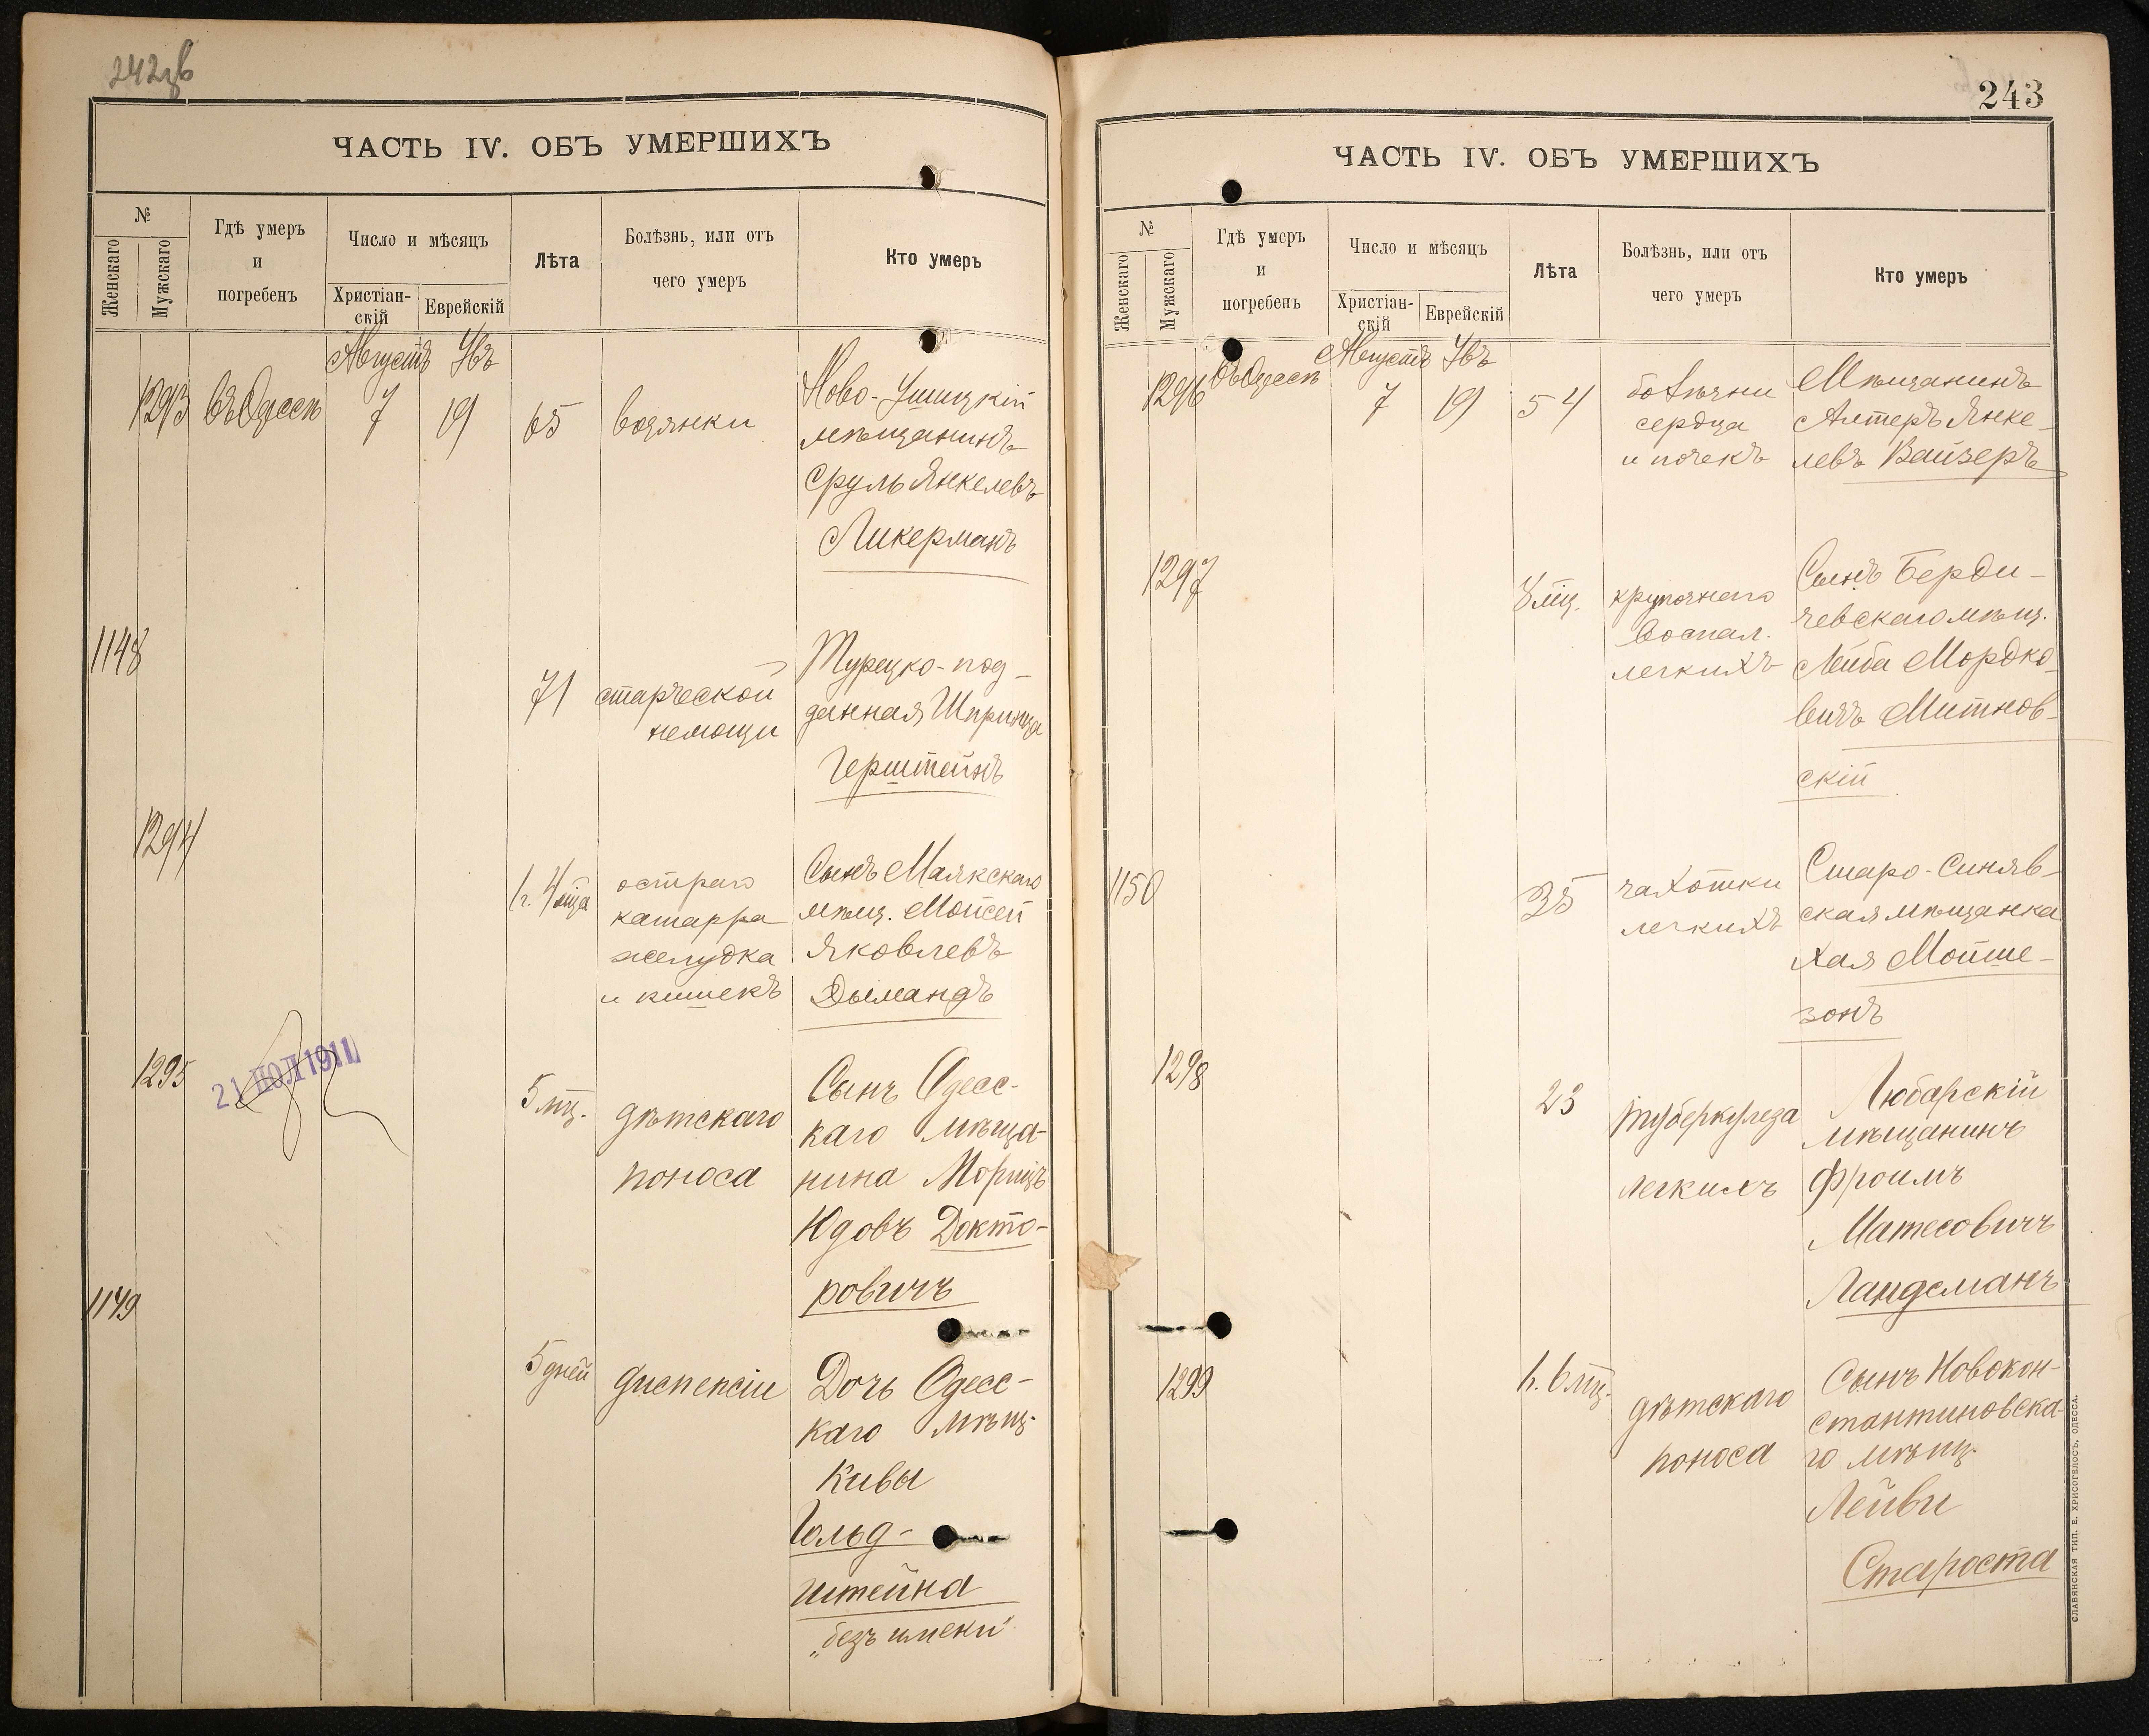 242
ЧАСТЬ IV. ОБЪ УМЕРШИХЪ
№
Женскаго
Мужскаго
Гдѣ умеръ
и
погребенъ
Число и мѣсяцъ
Христіан-
скій
Еврейскій
Лѣта
Болѣзнь, или отъ
чего умеръ
Кто умеръ
Августъ
1293 въ Одессѣ 7 19 65 водянки
Ново-Ушицкій
мѣщанинъ
Сруль Янкелевъ
Ликерманъ
1148
71 старческой
немощи
Турецко-под-
данная Шпринца
Герштейнъ
1294
1 г. 4 м-ца
остраго
катарра
желудка
и кишекъ
Сынъ Маякскаго
мѣщ. Мойсей
Яковлевъ
Дымандъ
1295
21 ІЮЛ 1911
5 мц.
дѣтскаго
поноса
Сынъ Одесс-
каго мѣща-
нина Морицъ
Юдовъ Докто-
ровичъ
1149
5 дней
диспепсіи
Дочь Одесс-
каго мѣщ.
Кивы
Гольд-
штейна
„безъ имени"
243
ЧАСТЬ IV. ОБЪ УМЕРШИХЪ
№
Женскаго
Мужскаго
Гдѣ умеръ
и
погребенъ
Число и мѣсяцъ
Христіан-
скій
Еврейскій
Лѣта
Болѣзнь, или отъ
чего умеръ
Кто умеръ
Августъ
1296 въ Одессѣ 7 19 54
болѣзни
сердца
и почекъ
Мѣщанинъ
Алтеръ Янке-
левъ Вайзеръ
1297
8 мц.
крупознаго
воспал.
легкихъ
Сынъ Берди-
чевскаго мѣщ.
Лейба Мордко-
вичъ Митнов-
скій
1150
35
чахотки
легкихъ
Старо-Синяв-
ская мѣщанка
Хая Мойше-
зонъ
1298
23
туберкулеза
легкихъ
Любарскій
мѣщанинъ
Фроимъ
Матесовичъ
Ландсманъ
1299
1 г. 6 мц.
дѣтскаго
поноса
Сынъ Новокон-
стантиновска-
го мѣщ.
Лейви
Староста
СЛАВЯНСКАЯ ТИП. Е. ХРИСОГЕЛОСЪ, ОДЕССА.